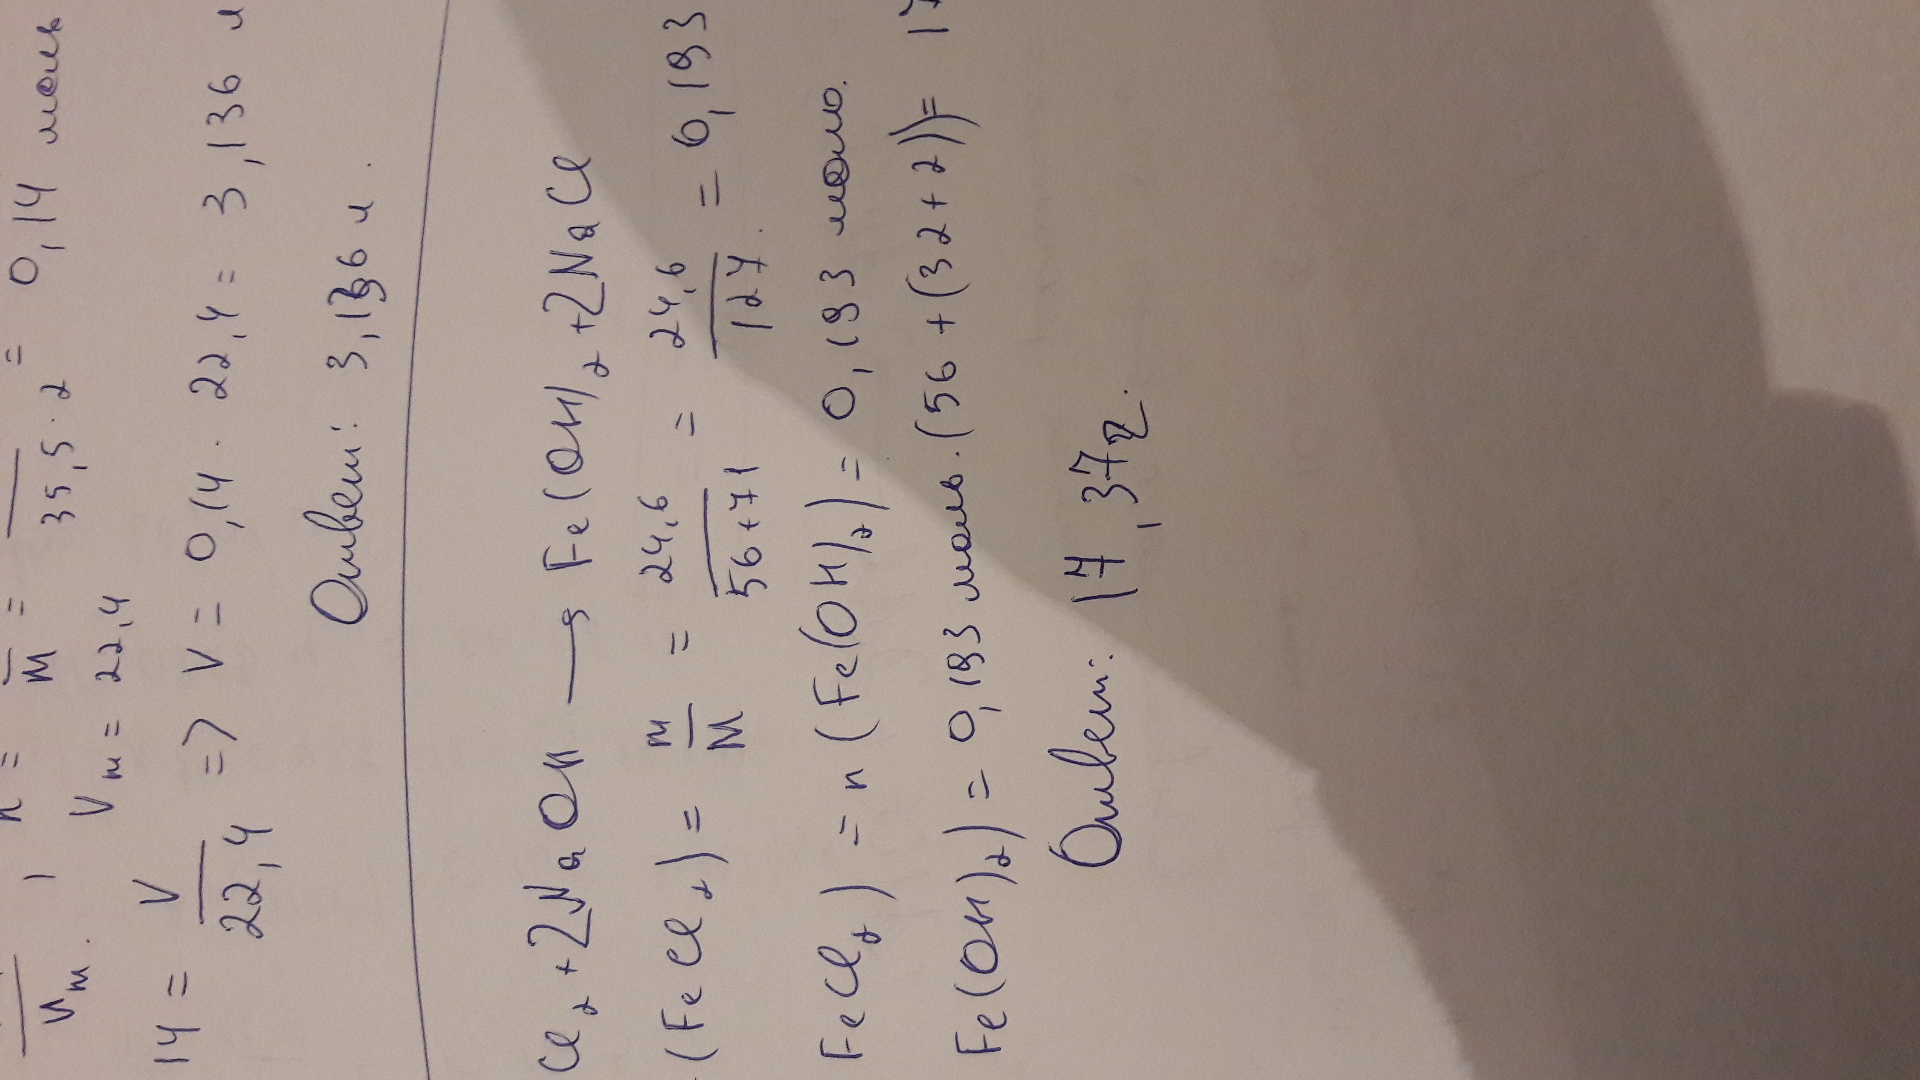 Vm. , n = — / M = — / 35,5·2 = 0,14 моль
Vm = 22,4
14 = V / 22,4 => V = 0,14 · 22,4 = 3,136 л
Ответ: 3,136 л.
Cl₂ + 2NaOH → Fe(OH)₂ + 2NaCl
(FeCl₂) = m / M = 24,6 / 56+71 = 24,6 / 127. = 0,193
FeCl₂) = n (Fe(OH)₂) = 0,193 моль.
Fe(OH)₂) = 0,193 моль. (56 + (32 + 2)) = 17
Ответ: 17,37г.